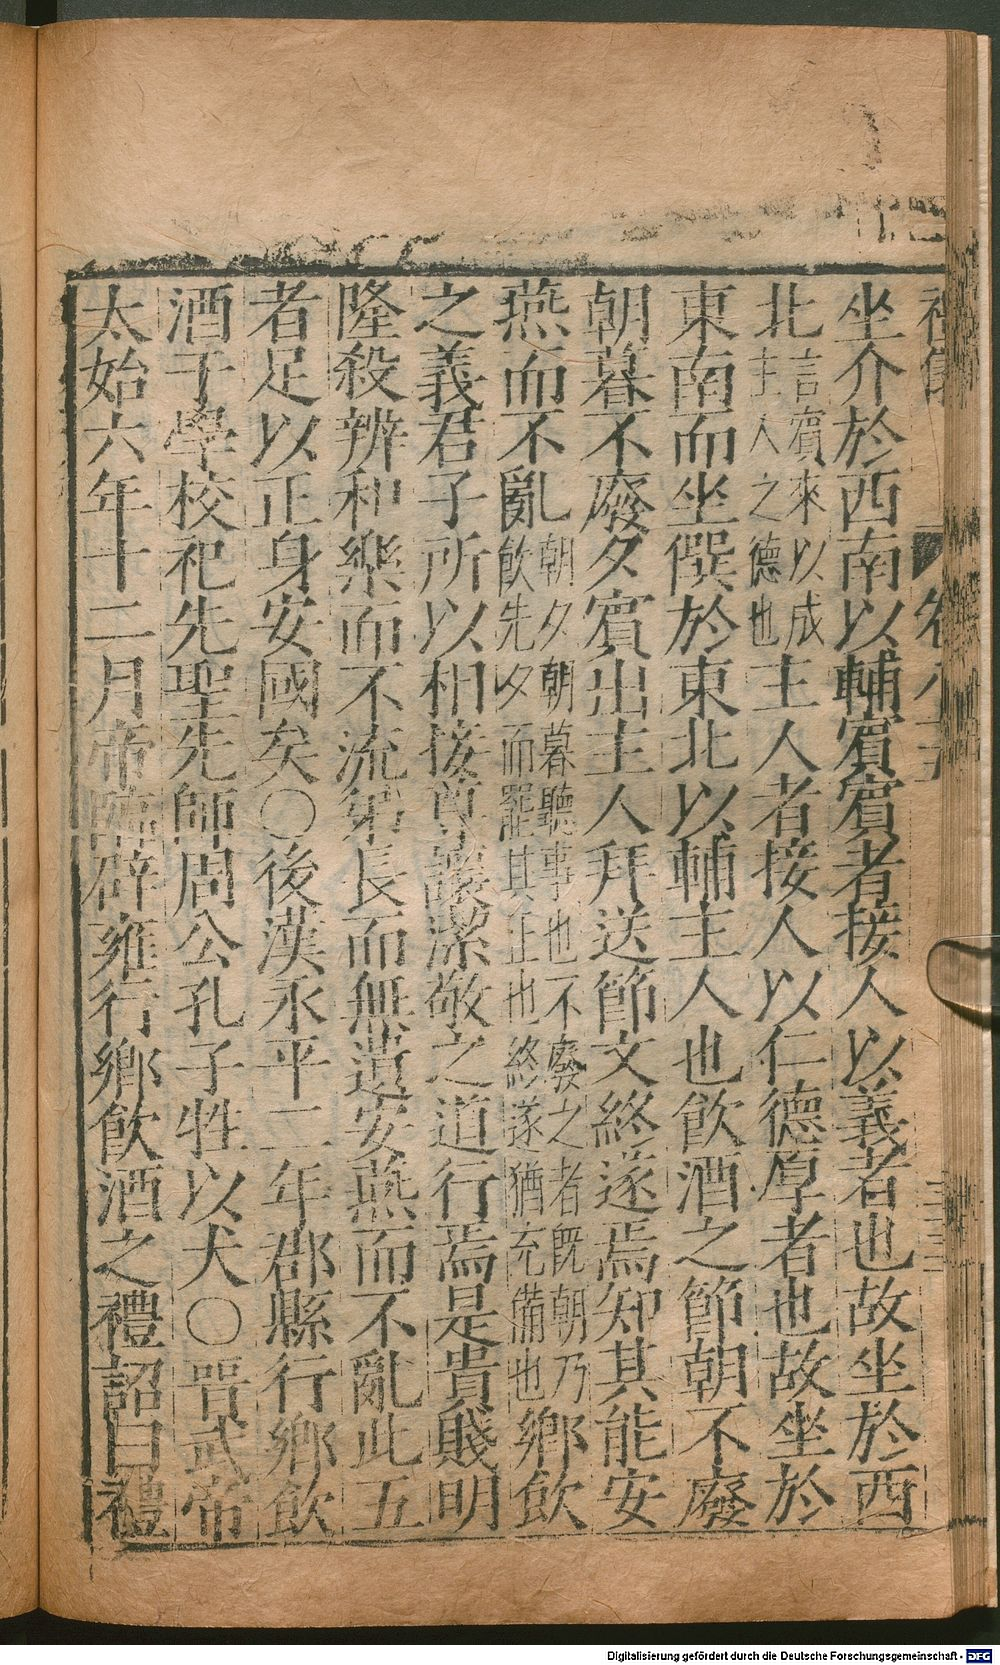 坐介於西南以輔賓賓者接人以義者也故坐於西
北言賓來以成主人之德也主人者接人以仁德厚者也故坐於
東南而坐僎於東北以輔主人也飲酒之節朝不廢
朝暮不廢夕賓出主人拜送節文終遂焉知其能安
燕而不亂朝夕朝暮聽事也不廢之者既朝乃飲先夕而罷其正也終遂猶充備也鄉飲
之義君子所以相接尊讓潔敬之道行焉是貴賤明
隆殺辨和樂而不流弟長而無遺安燕而不亂此五
者足以正身安國矣○後漢永平二年郡縣行鄉飲
酒于學校祀先聖先師周公孔子牲以犬○晋武帝
太始六年十二月帝臨辟雍行鄉飲酒之禮詔曰禮
Digitalisierung gefördert durch die Deutsche Forschungsgemeinschaft - DFG